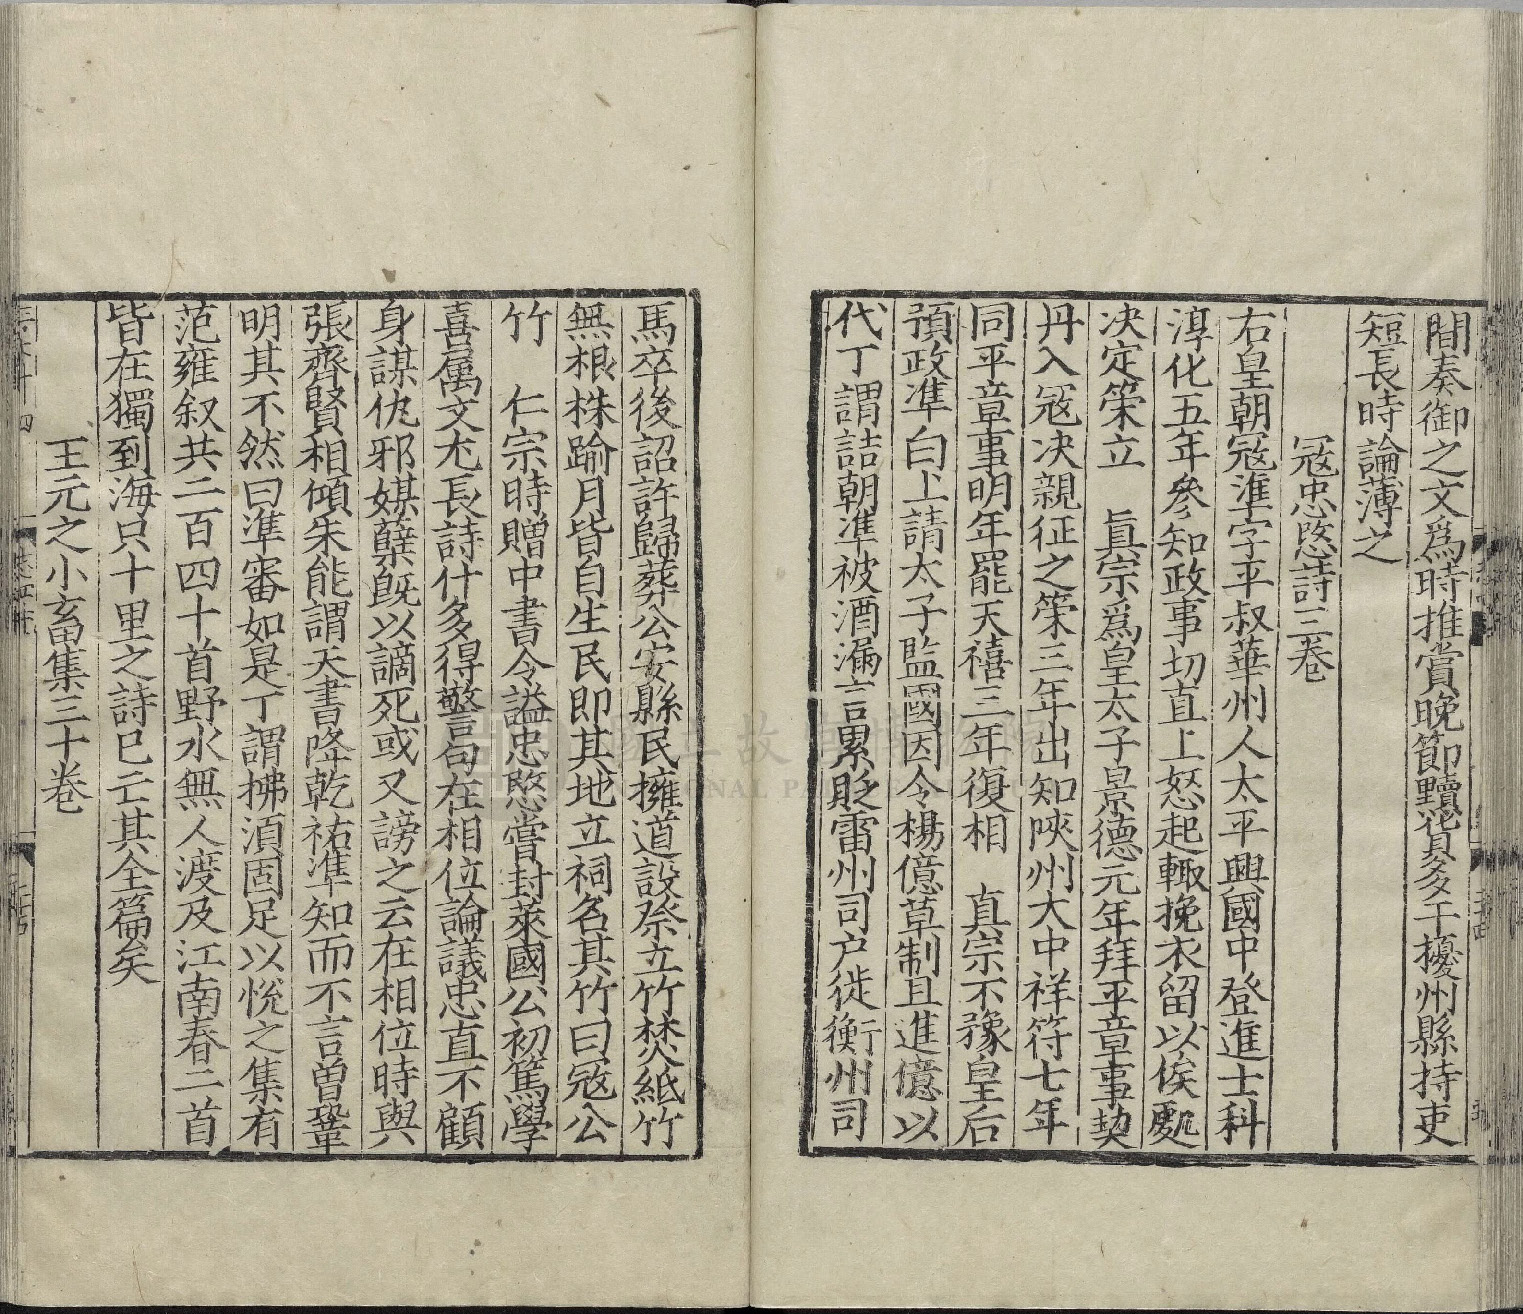 間奏御之文爲時推賞晚節黷貨多干擾州縣持吏
短長時論薄之
寇忠愍詩三卷
右皇朝寇準字平叔華州人太平興國中登進士科
淳化五年參知政事切直上怒起輙挽衣留以俟䖏
决定策立　眞宗爲皇太子景德元年拜平章事契
丹入寇决親征之策三年出知陝州大中祥符七年
同平章事明年罷天禧三年復相　真宗不豫皇后
預政準白上請太子監國因令楊億草制且進億以
代丁謂詰朝準被酒漏言累貶雷州司户徙衡州司
馬卒後詔許歸葬公安縣民擁道設祭立竹焚紙竹
無根株踰月皆自生民即其地立祠名其竹曰寇公
竹　仁宗時贈中書令謚忠愍嘗封萊國公初篤學
喜属文尤長詩什多得警句在相位論議忠直不顧
身謀仇邪媒糵旣以謫死或又謗之云在相位時與
張齊賢相傾朱能謂天書降乾祐準知而不言曽鞏
明其不然曰準審如是丁謂拂湏固足以恱之集有
范雍叙共二百四十首野水無人渡及江南春二首
皆在獨到海只十里之詩已亡其全篇矣
王元之小畜集三十卷